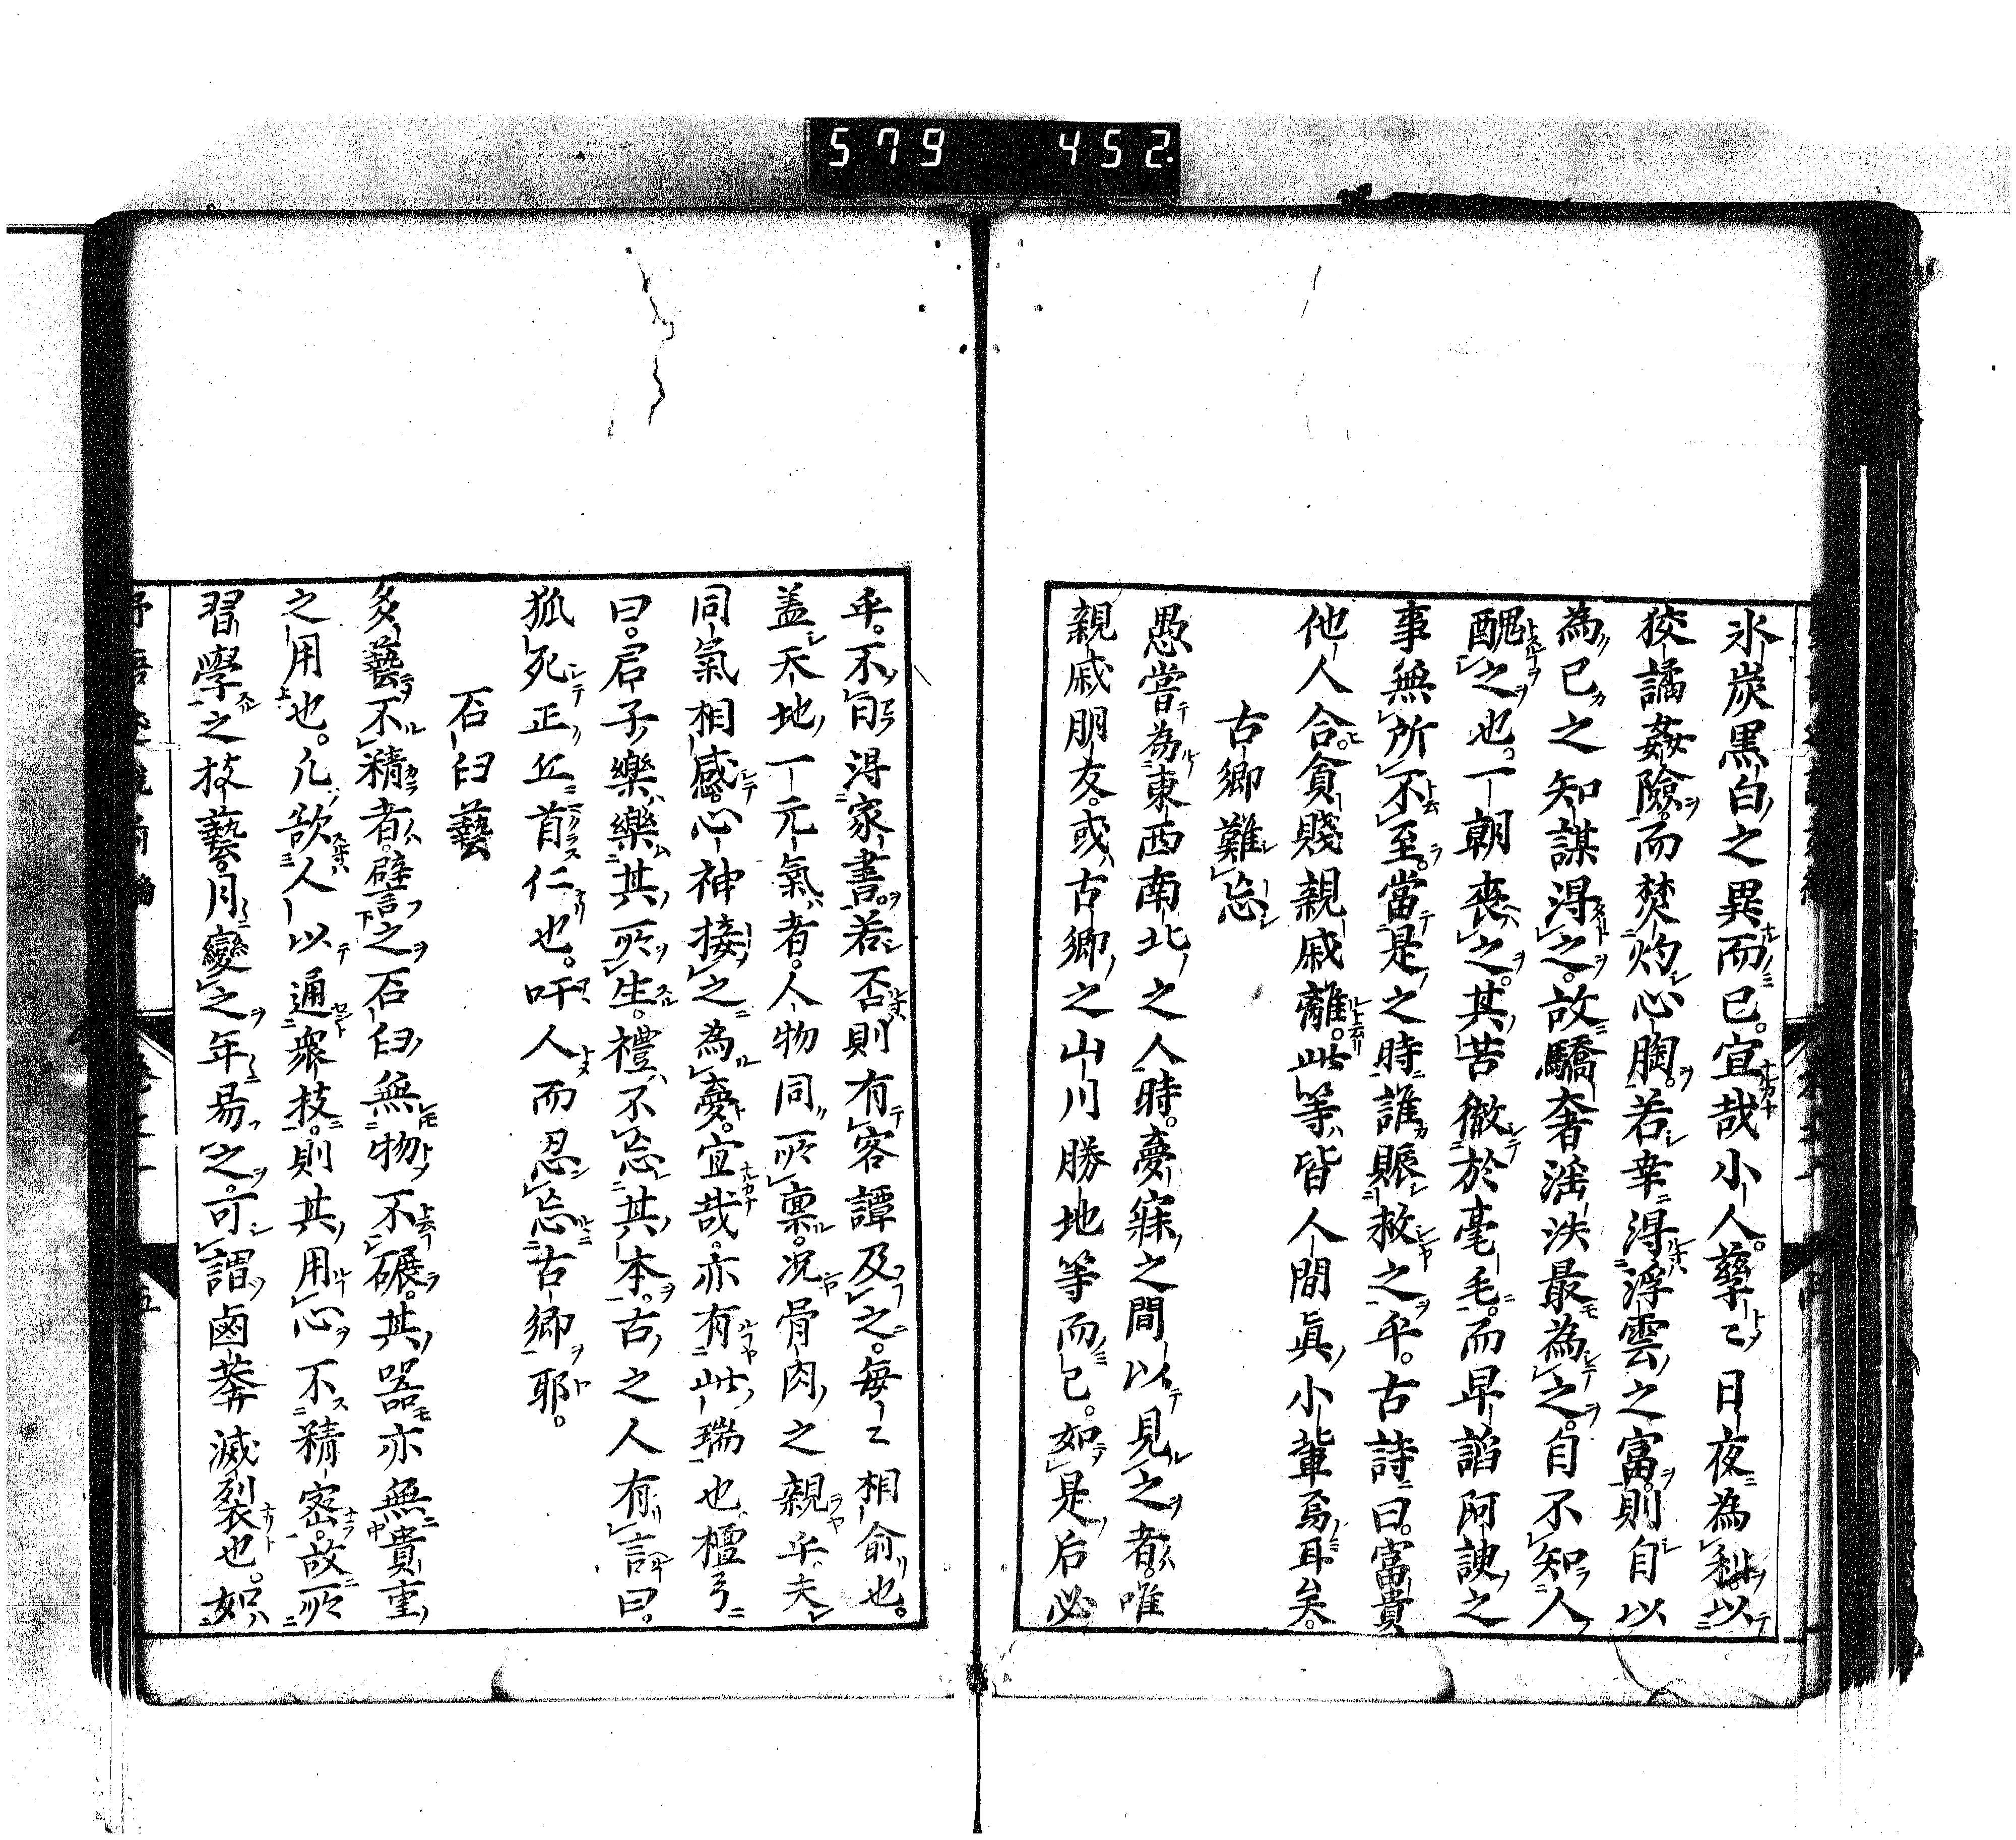 579 452
氷炭黒白之異而已。宜哉小人。孳〻日夜為利。以
狡譎姦険。而焚灼心胸。若幸得浮雲之富。則自以
為己之知謀得之。故驕奢淫泆最為之。自不知人
醜之也。一朝喪之。其苦徹於毫毛。而早諂阿諛之
事無所不至。當是之時誰賑救之乎。古詩曰。富貴
他人合。貧賤親戚離。此等皆人間眞小輩焉耳矣。
古郷難忘
愚嘗為東西南北之人時。夢寐之間以見之者。唯
親戚朋友。或古郷之山川勝地等而已。如是后必
乎。不自得家書。若否則有客譚及之。毎〻相俞也。
盖天地一元氣者。人物同所稟。况骨肉之親乎。夫
同氣相感。心神接之為夢。宜哉。亦有此瑞也。檀弓
曰。君子樂樂其所生。禮不忘其本。古之人有言曰。
狐死正丘首仁也。吁人而忍忘古郷耶。
石臼藝
多藝不精者。譬之石臼無物不碾。其器亦無貴重
之用也。凢欲人以通衆技。則其用心不精密。故所
習學之技藝。月變之年易之。可謂鹵莽滅裂也。如